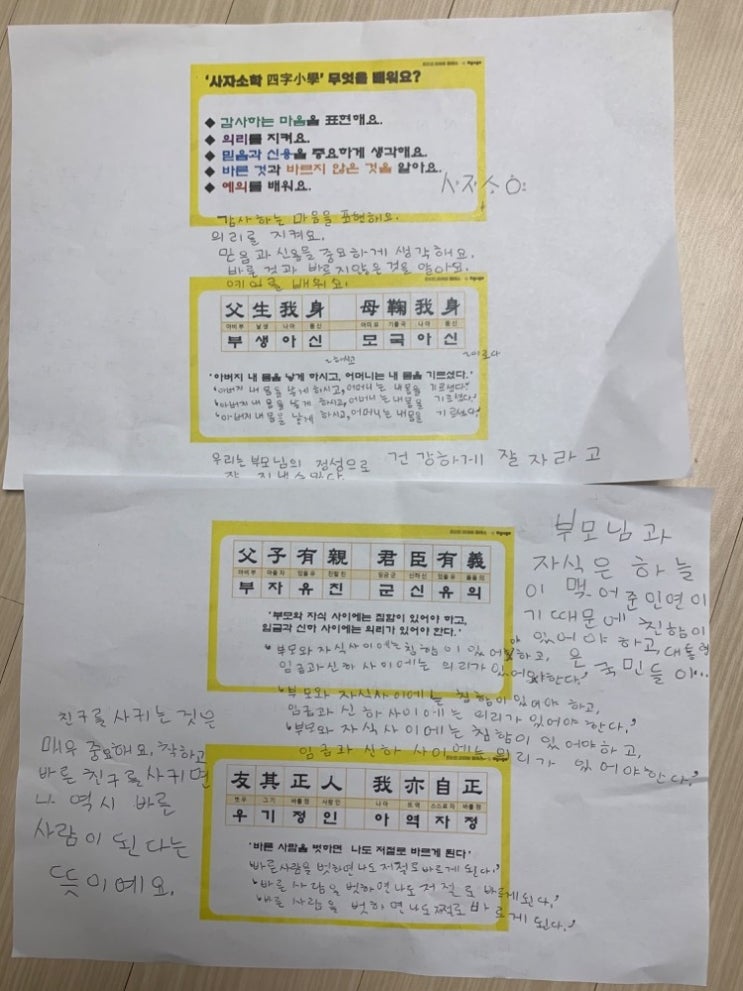 '사자소학 四字小學' 무엇을 배워요?
◆ 감사하는 마음을 표현해요.
◆ 의리를 지켜요.
◆ 믿음과 신용을 중요하게 생각해요.
◆ 바른 것과 바르지 않은 것을 알아요.
◆ 예의를 배워요.
사자소
감사하는 마음을 표현해요.
의리를 지켜요.
믿음과 신용을 중요하게 생각해요.
바른 것과 바르지않은 것을 알아요.
예의를 배워요.
父 生 我 身 母 鞠 我 身
아비 부 날 생 나 아 몸 신 어미 모 기를 국 나 아 몸 신
부 생 아 신 모 국 아 신
'아버지 내 몸을 낳게 하시고, 어머니는 내 몸을 기르셨다.'
'아버지 내 몸을 낳게 하시고, 어머니는 내 몸을 기르셨다.'
'아버지 내 몸을 낳게 하시고, 어머니는 내 몸을 기르셨다.'
'아버지 내 몸을 낳게 하시고, 어머니는 내 몸을 기르셨다.'
우리는 부모님의 정성으로 건강하게 잘 자라고
잘 지내
父 子 有 親 君 臣 有 義
아비 부 아들 자 있을 유 친할 친 임금 군 신하 신 있을 유 옳을 의
부 자 유 친 군 신 유 의
'부모와 자식 사이에는 친함이 있어야 하고,
임금과 신하 사이에는 의리가 있어야 한다.'
'부모와 자식사이에는 침함이 있어야 하고,
임금과 신하 사이에는 의리가 있어야한다.'
'부모와 자식사이에는 침함이 있어야 하고,
임금과 신하사이에는 의리가 있어야한다.'
'부모와 자식 사이에는 침함이 있어야하고,
임금과 신하 사이에는 의리가 있어야한다.'
부모님과
자식은 하늘
이 맺어준인연이
기때문에 친함이
있어야 하고, 대통령
은 국민들이...
친구를사귀는것은
매우 중요해요. 착하고
바른 친구를사귀면
나 역시 바른
사람이 된다는
뜻이에요.
友 其 正 人 我 亦 自 正
벗 우 그 기 바를 정 사람 인 나 아 또 역 스스로 자 바를 정
우 기 정 인 아 역 자 정
'바른 사람을 벗하면 나도 저절로 바르게 된다'
'바른사람을 벗하면 나도 저절로 바르게 된다.'
'바른 사람을 벗하면 나도 저절로 바르게된다.'
'바른 사람을 벗하면 나도 저절로 바르게 된다.'